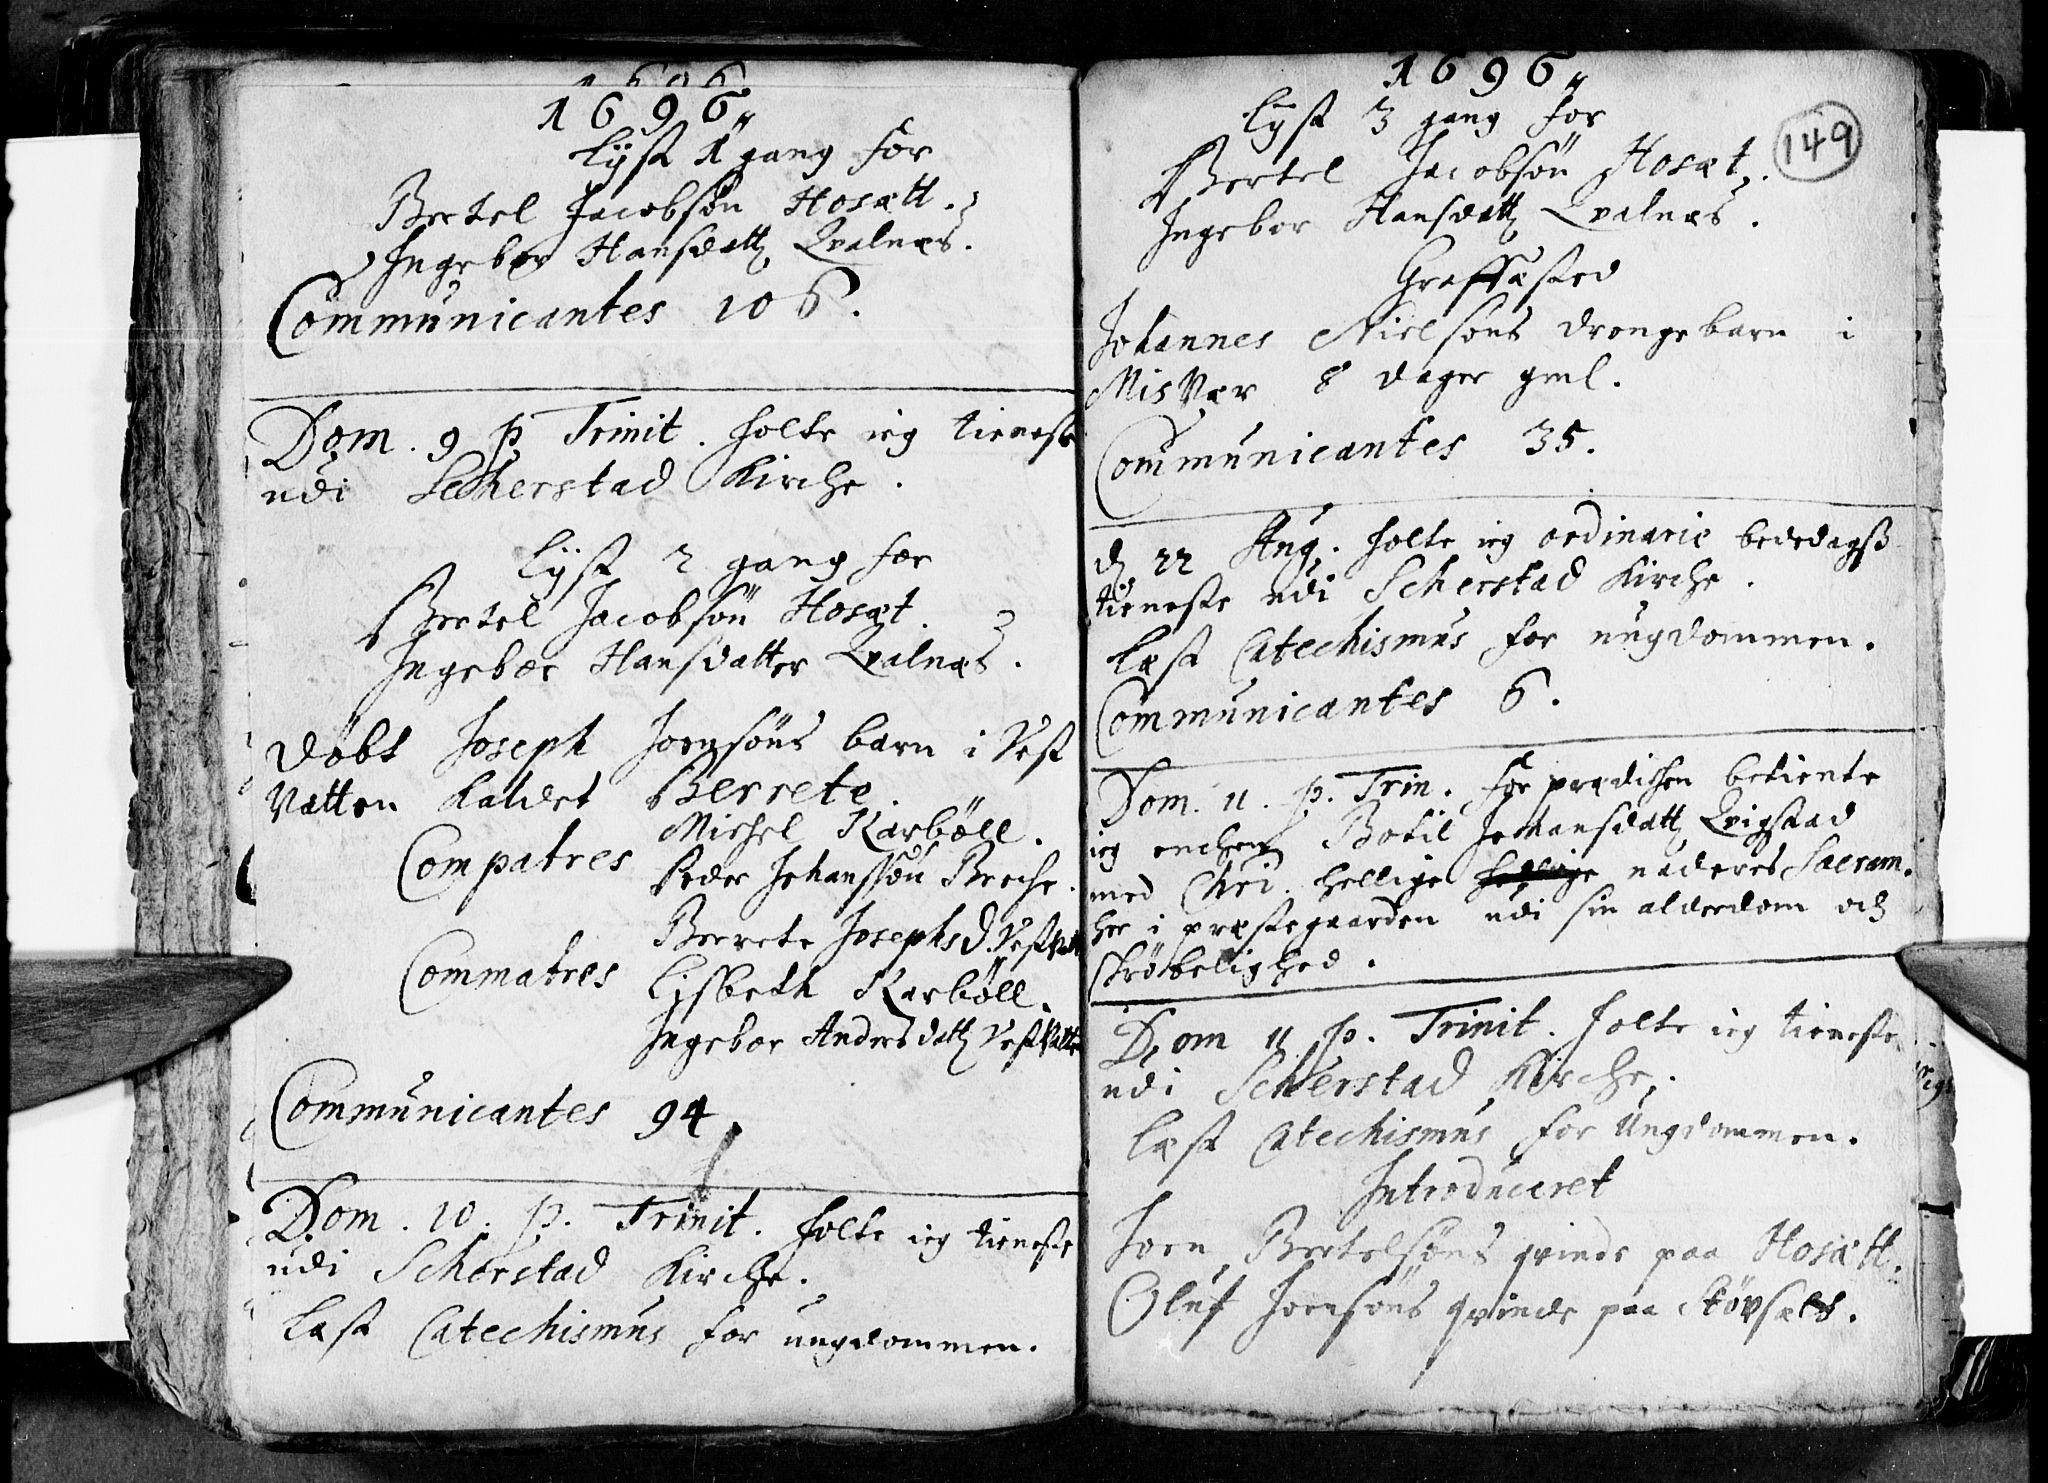 1696
1696„
Lyst 1 gang for
Bertel Jacobsøn Hosætt.
Ingebor Hansdatt Qvalnæs.
Communicantes 106.
Dom. 9 p Trinit. holte ieg tieneste
udi Scherstad Kirche.
Lyst 2 gang for
Bertel Jacobsøn Hosæt.
Ingebor Hansdatter Qvalnæs.
Døbt Joseph Joensøns barn i Vest
Vatten kaldet Berrete.
Michel Karbøll.
Compatres Peder Johanssøn Breche.
Berrete Josephsd. Vestvatt
Commatres Lisbeth Karbøll.
Ingebor Andersdatt Vestvatte
Communicantes 94
Dom. 10. p. Trinit. holte ieg tieneste
udi Scherstad Kirche.
Læst Catechismus for ungdommen.
1696„
149
Lyst 3 gang for
Bertel Jacobsøn Hosæt.
Ingebor Hansdatt Qvalnæs.
Graffæsted
Johannes Nielsøns drengebarn i
Misvær 8 dager gml.
Communicantes 35.
d 22 Aug. holte ieg ordinarie bededagß
tieneste udi Scherstad Kirche.
Læst Catechismus for ungdommen.
Communicantes 6.
Dom. 11. p. Trin. for prædichen betiente
ieg enchen Botil Johansdatt Qvigstad
med Chri. hellige hellige naderes Sacram.
her i præstegaarden udi sin alderdom och
schrøbelighed.
Dom 11 p. Trinit. holte ieg tieneste
udi Scherstad Kirche.
Læst Catechismus for Ungdommen.
Introduceret
Joen Bertelsøns qvinde paa Hosætt.
Oluf Joensøns qvinde paa Støvsæt.